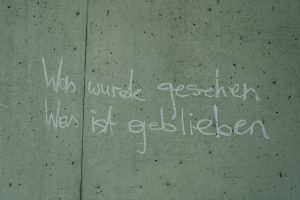 Was wurde gesehen
Was ist geblieben